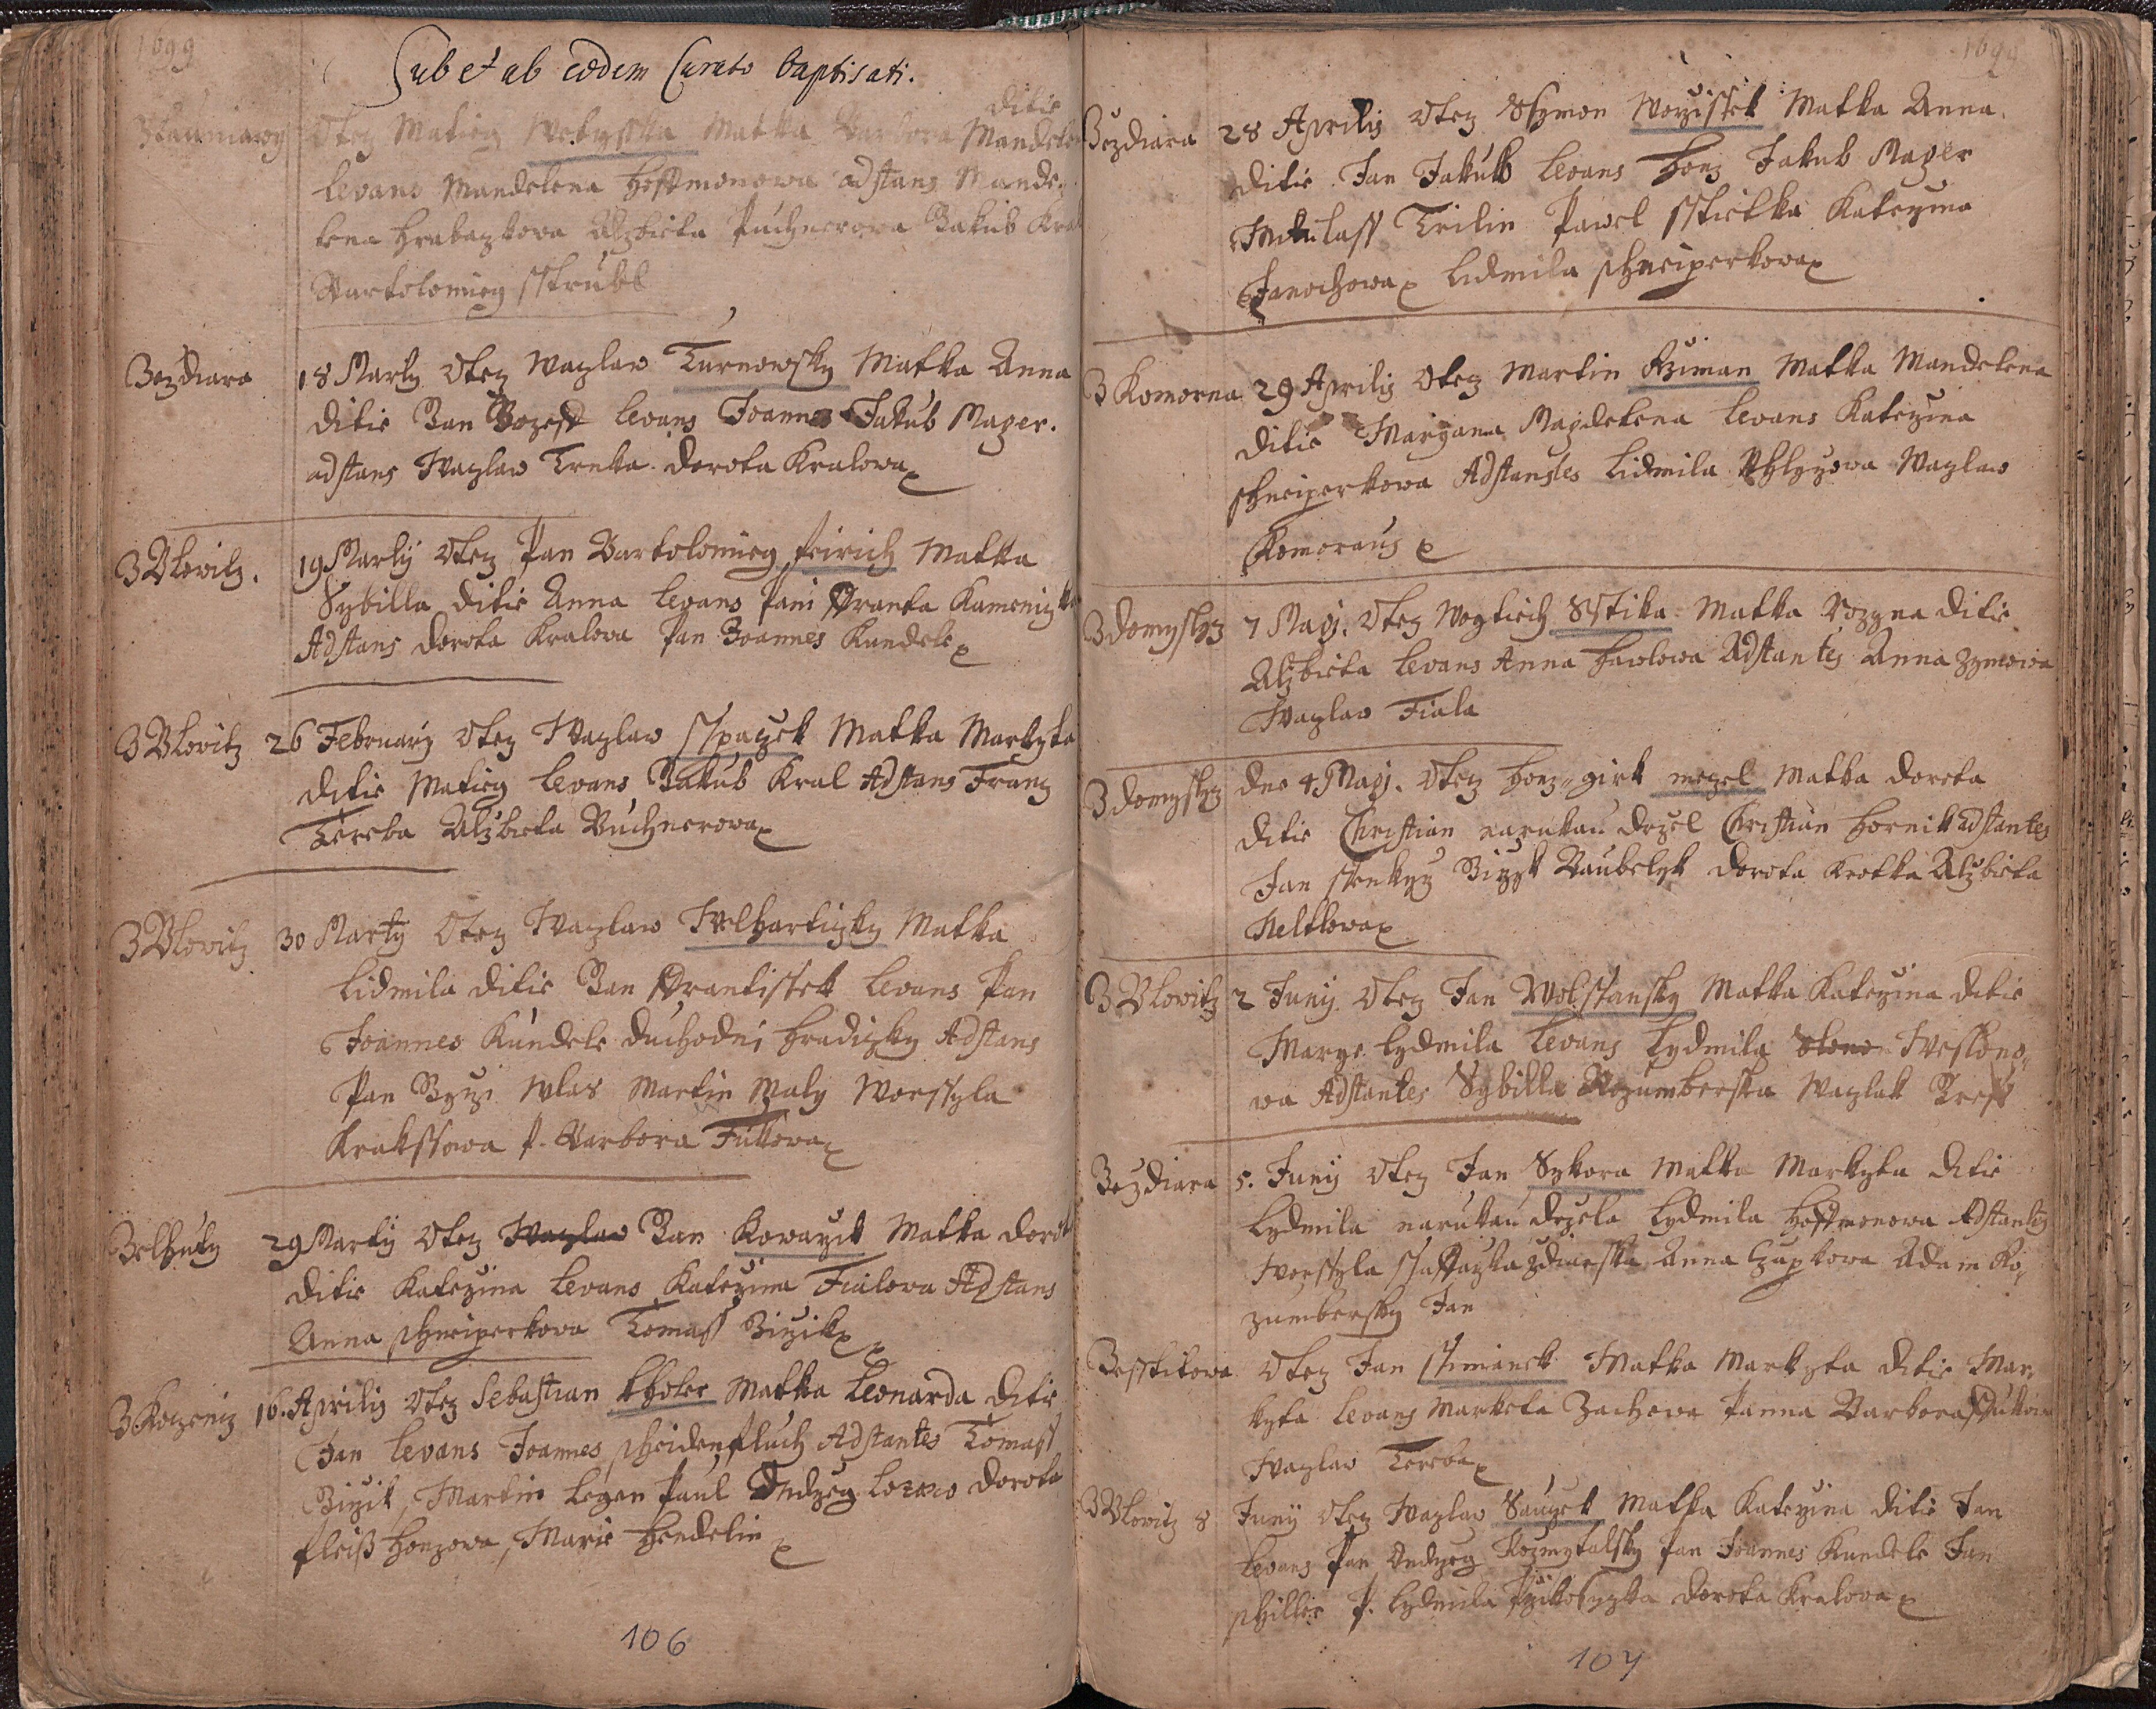 1699
Sub et ab eodem Curato baptisati.
Otez Matieg Matka Barbora ditie Mandele
levans Mandelena Hoffmonowa adstans Mande
lena Hrabaczkova Alzbieta Puchnerowa Jakub Kral
Bartolomieg sstrubl
Zezdiara 18 Marty Otez Wazlaw Turnowsky Matka Anna
ditie Jan Jozeff levans Joannes Jakub Mayer.
adstans Wazlaw Trnka. dorota Kralowa
Z Blowitz. 19 Marty Otez Pan Bartolomieg feirich Matka
Sybilla ditie Anna levans Pani Franta Kameniz
Adstans dorota Kralova Pan Joannes Kundele
Z Blovitz 26 February Otez Wazlaw Sspaczek Matka Markyta
ditie Matieg levans Jakub Kral Adstans Franz
Tereba Alzbieta Buchnerowa
Z Blovitz 30 Marty Otez Wazlaw Welhartizky Matka
Lidmila ditie Jan Frantissek levans Pan
Joannes Kundele duchodni hradizky Adstans
Pan Girzi Wlas Martin Maly Worssyla
Krakssowa P. Barbora Fukowa
Zelhuty 29 Marty Otez Wazlaw Jan Kowarzik Matka dorot
ditie Katerzina levans Katerzina Fialowa Adstans
Anna schneiperkova Tomass Zizik
Z Kotzeniz 16. Aprilis Otez Sebastian Matka Leonarda ditie
Jan levans Joannes scheidenfluch Adstantes Tomass
Zizik, Martin Leger Paul Ondrzeg Lorenz dorota
fleiß honzowa, Marie hendelin
106
1699
Zezdiara 28 Aprilis Otez Sszymon Worzissek Matka Anna.
ditie Jan Jakub levans Honz Jakub Mayer
Mikulass Trilin Pawel sstietka Katerzina
Janochowa Lidmila schneiperkowa
Z Komorna 29 Aprilis Otez Martin Rziman Matka Mandelena
ditie Maryana Magdelena levans Katerzina
schneiperkowa Adstantes Lidmila Wazlaw
Komoraus
Z domyslyz 7 Maji. Otez Wogtiech Sstika Matka Rozyna ditie
Alzbieta levans Anna hawlowa Adstantes Anna zymowa
Wazlaw Fiala
Z domyslyz dne 4 Maji. Otez honz girk mezel Matka dorota
ditie Christian narukau drzel Christian hornik adstantes
Jan dorota Krotka Alzbieta
Neltlowa
Z Blovitz 2 Juny Otez Jan Wolssansky Matka Katerzina ditie
Marye Lydmila levans Lydmila Wesslono
wa Adstantes Sybilla Rozumberska Wazlak Tress
Zezdiara 5. Juny Otez Jan Sykora Matka Markyta ditie
Lydmila narukau drzela Lydmila Hoffmonowa Adstantes
Worssyla ssaffarzka zdiarska Anna Czapkowa Adam Ro
zumbersky Jan
Zesstitowa Otez Jan ssimanek Matka Markyta ditie Mar
kyta levans Marketa Zachowa Panna Barbora Fukowa
Wazlaw Tereba
Z Blovitz 8 Juny Otez Wazlaw Sauczek Matka Katerzina ditie Jan
levans Pan Ondrzeg Rozmytalsky Pan Joannes Kundele Jan
schiller P. Lydmila dorota Kralova
107